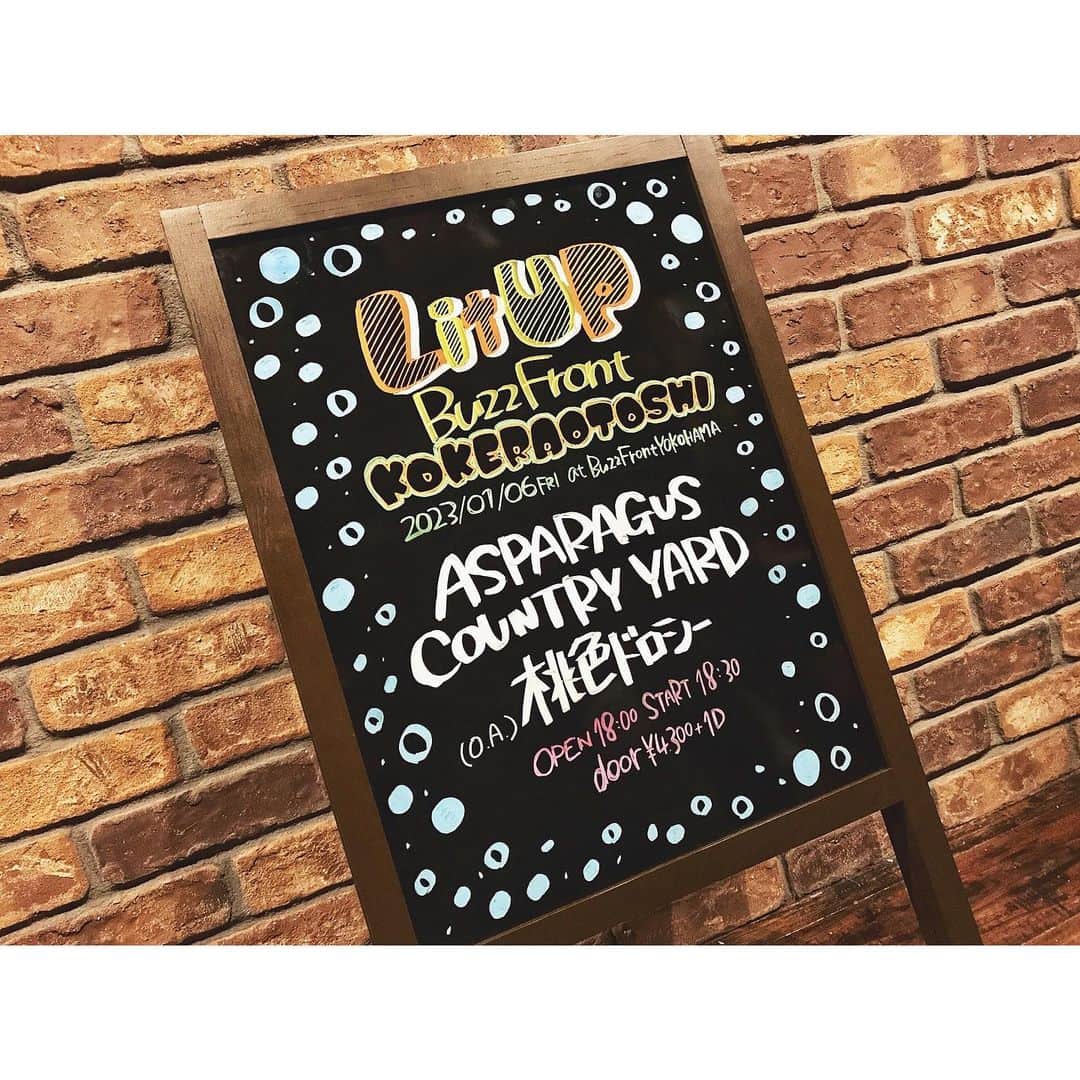 LitUP
BuzzFront
KOKERAOTOSHI
2023/01/06 FRI at BuzzFrontYOKOHAMA
ASPARAGUS
COUNTRY YARD
(O.A.) 桃色ドロシー
OPEN 18:00 START 18:30
door ¥4,300+1D